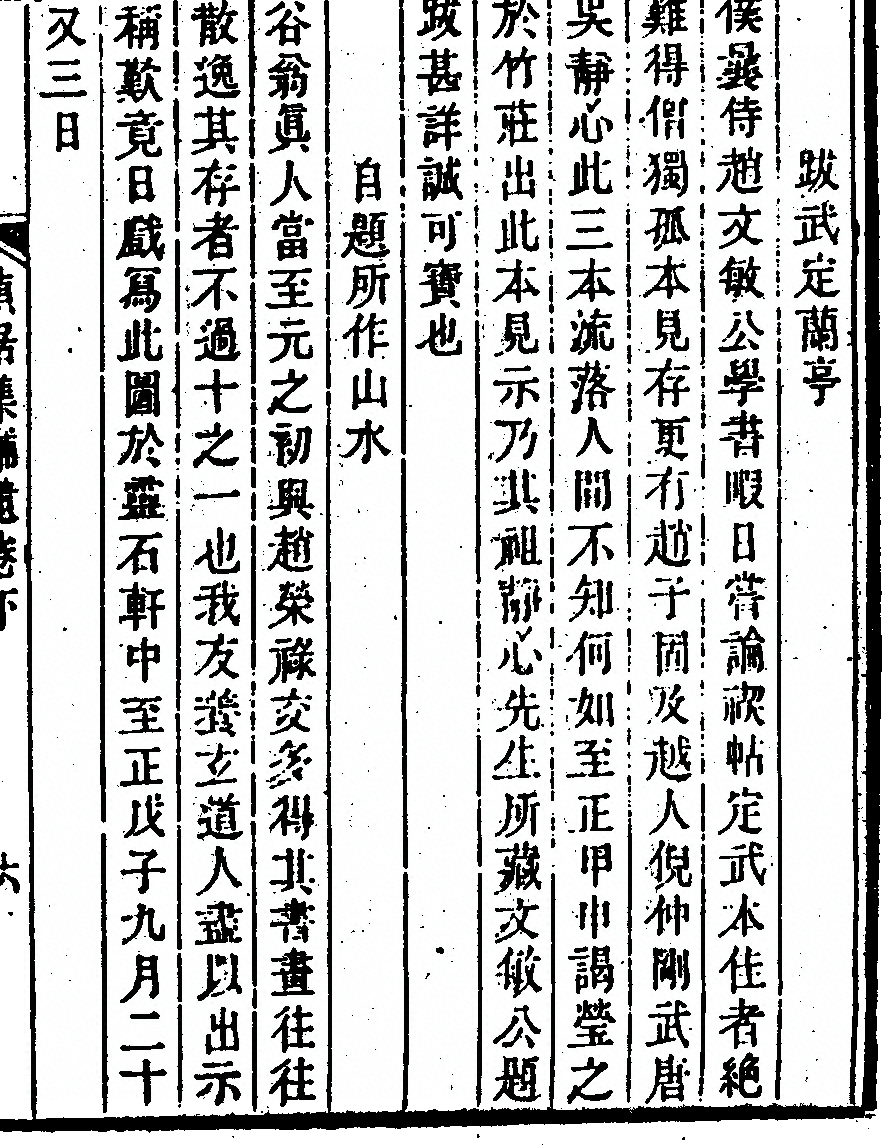 跋武定蘭亭
僕曩侍趙文敏公學書暇日嘗論禊帖定武本佳者絶
難得僧獨孤本見存更有趙子固及越人倪仲剛武唐
吳靜心此三本流落人間不知何如至正甲申謁瑩之
於竹莊出此本見示乃其祖靜心先生所藏文敏公題
跋甚詳誠可寶也
自題所作山水
谷翁眞人當至元之初與趙榮祿交多得其書畫往往
散逸其存者不過十之一也我友裴玄道人盡以出示
稱歎竟日戲寫此圖於靈石軒中至正戊子九月二十
又三日
貞居集補遺卷下
六